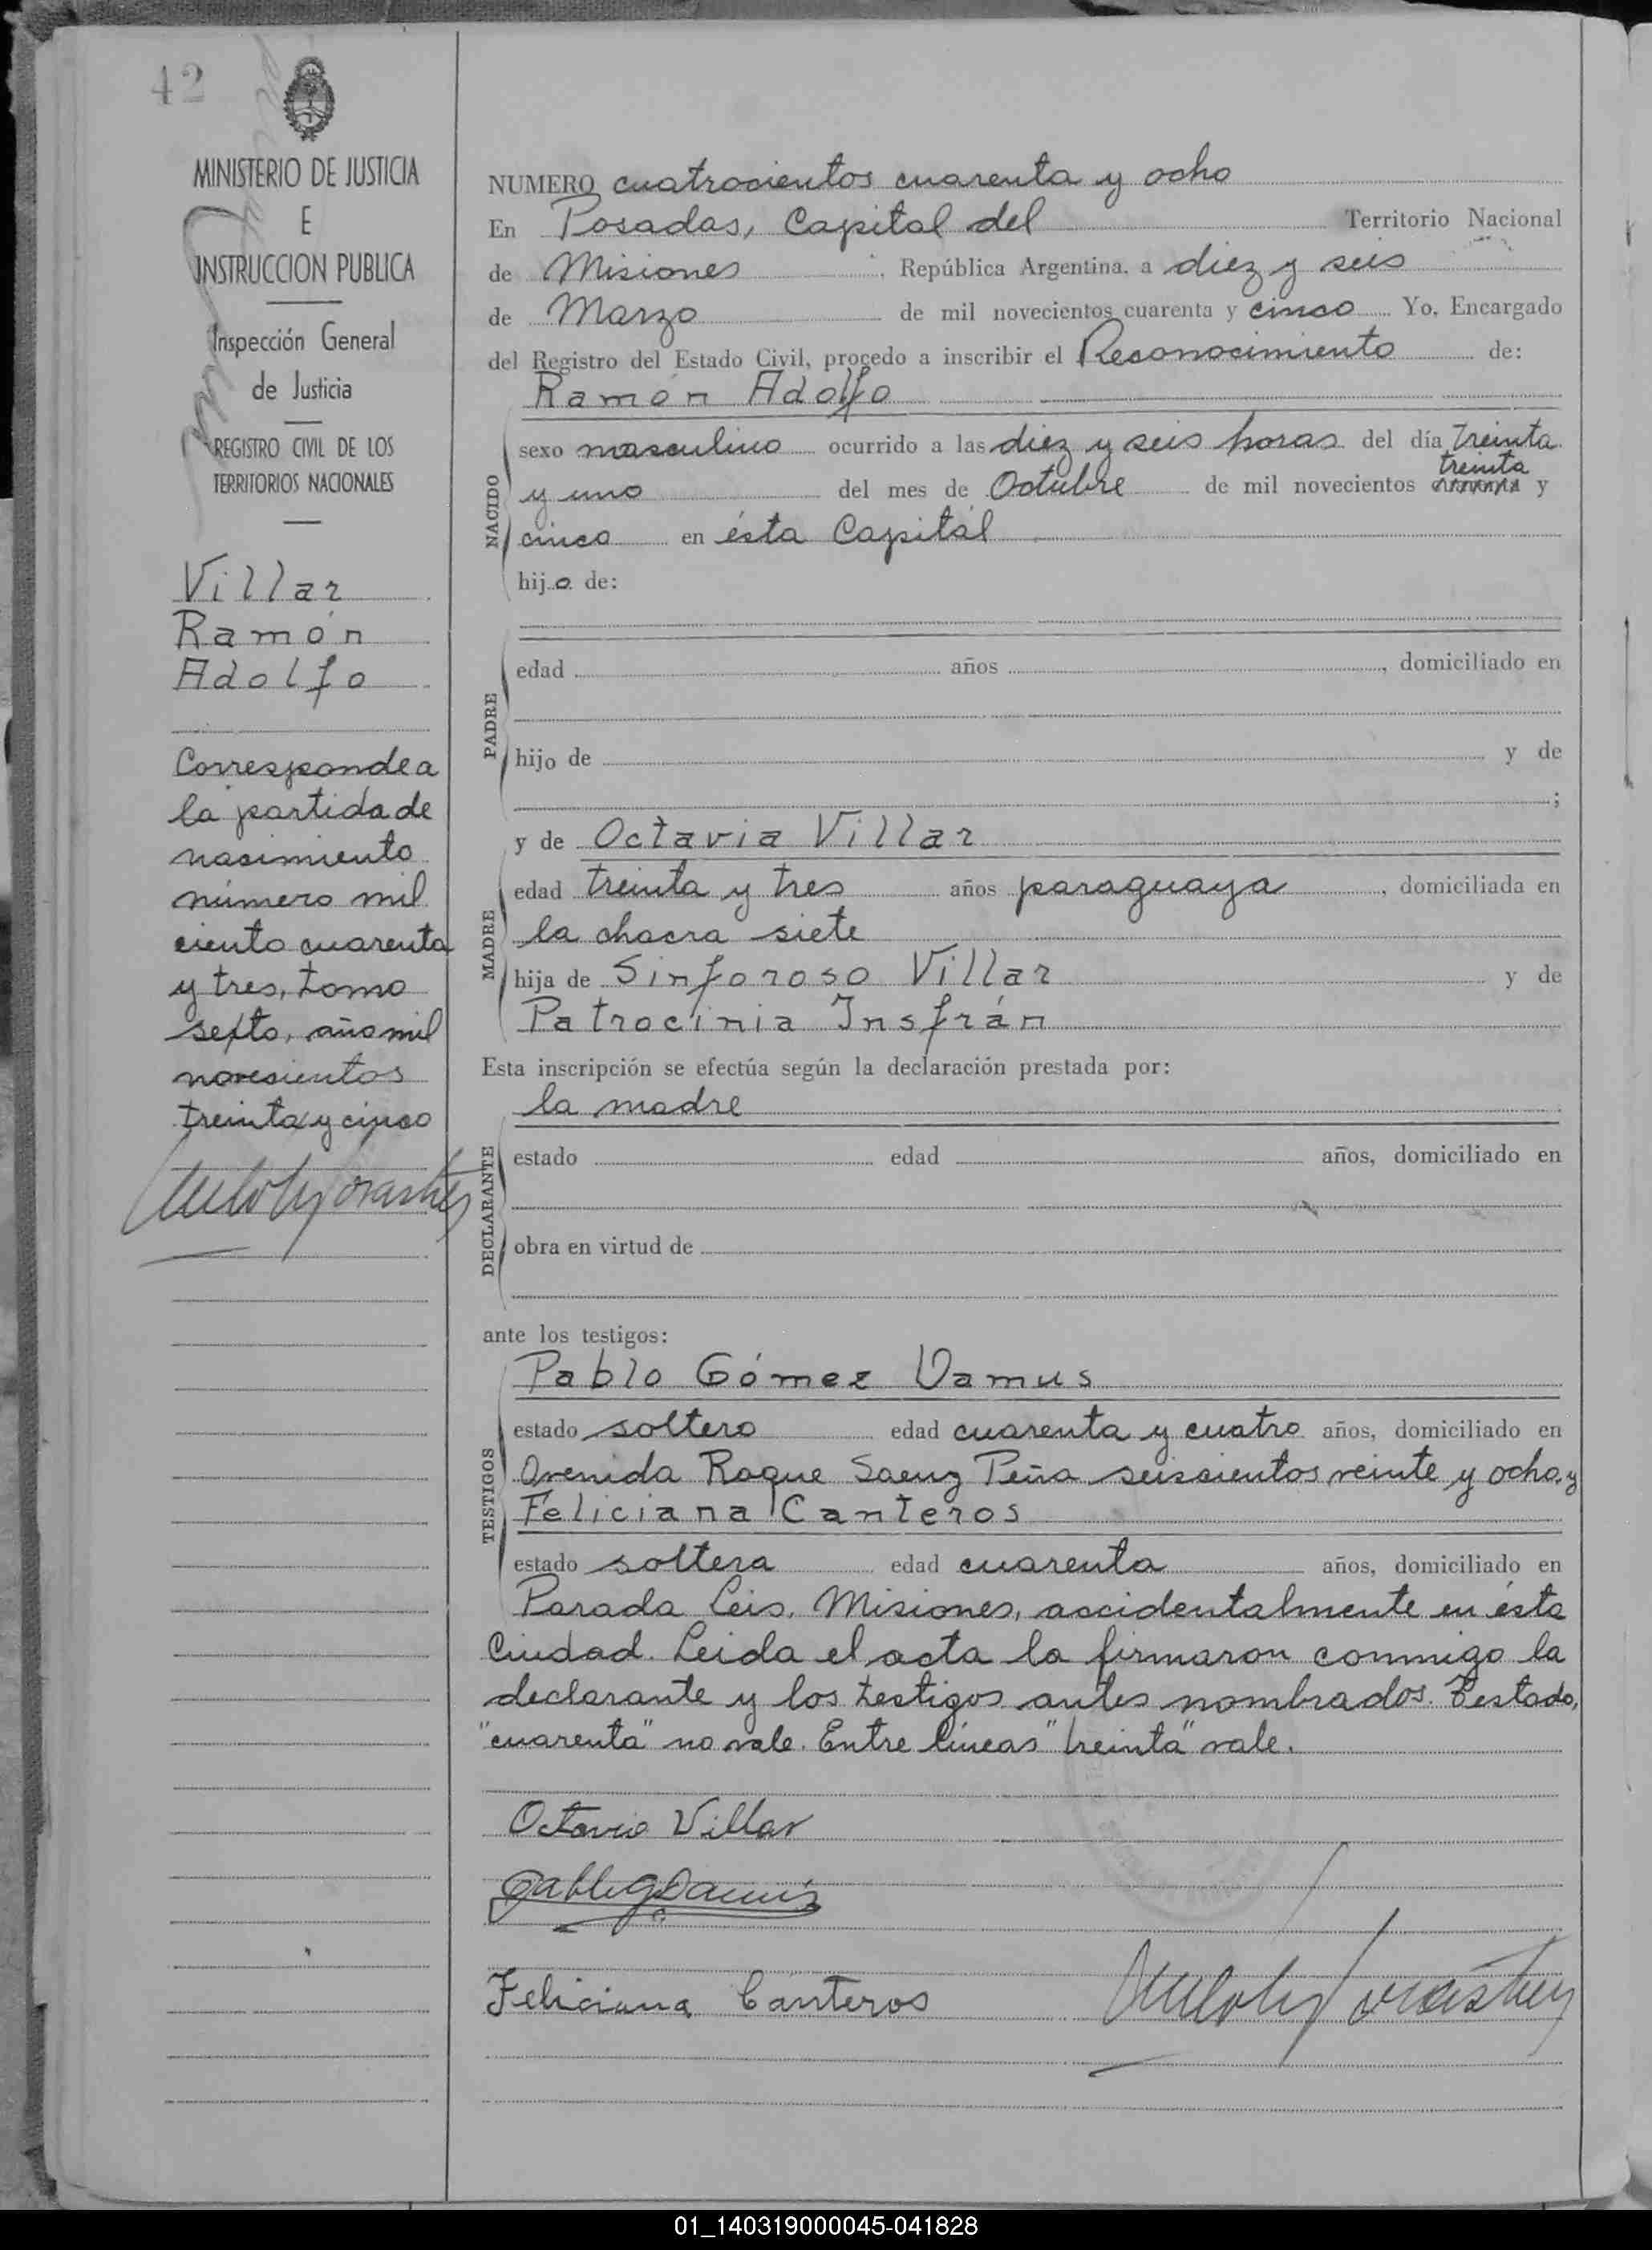 42
MINISTERIO DE JUSTICIA
E
INSTRUCCION PUBLICA
Inspección General
de Justicia
REGISTRO CIVIL DE LOS
TERRITORIOS NACIONALES
Villar
Ramón
Adolfo
Corresponde a
la partida de
nacimiento
número mil
ciento cuarenta
y tres, tomo
sexto, año mil
novecientos
treinta y cinco
NUMERO cuatrocientos cuarenta y ocho
En Posadas, Capital del Territorio Nacional
de Misiones, República Argentina, a diez y seis
de Marzo de mil novecientos cuarenta y cinco Yo, Encargado
del Registro del Estado Civil, procedo a inscribir el Reconocimiento de:
Ramón Adolfo
NACIDO
sexo masculino ocurrido a las diez y seis horas del día treinta
treinta
y uno del mes de Octubre de mil novecientos cuarenta y
cinco en ésta Capital
hijo de:
PADRE
edad años , domiciliado en
hijo de y de
;
MADRE
y de Octavia Villar
edad treinta y tres años paraguaya, domiciliada en
la chacra siete
hija de Sinforoso Villar y de
Patrocinia Insfrán
Esta inscripción se efectúa según la declaración prestada por:
la madre
DECLARANTE
estado edad años, domiciliado en
obra en virtud de
ante los testigos:
TESTIGOS
Pablo Gómez Damus
estado soltero edad cuarenta y cuatro años, domiciliado en
Avenida Roque Saenz Peña seiscientos veinte y ocho, y
Feliciana Canteros
estado soltera edad cuarenta años, domiciliado en
Parada Leis, Misiones, accidentalmente en ésta
Ciudad. Leida el acta la firmaron conmigo la
declarante y los testigos antes nombrados. Testado,
"cuarenta" no vale. Entre líneas "treinta" vale.
Octavia Villar
Feliciana Canteros
01_140319000045-041828